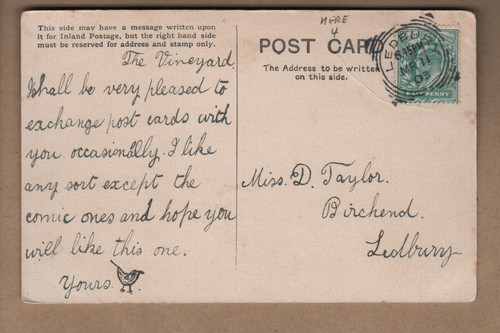 This side may have a message written upon
it for Inland Postage, but the right hand side
must be reserved for address and stamp only.
The Vineyard.
I shall be very pleased to
exchange post cards with
you occasionally. I like
any sort except the
comic ones and I hope you
will like this one.
Yours
HERE
4
POST CARD
The Address to be written
on this side.
LEDBURY
MR 11
HALF PENNY
Miss. D. Taylor.
Birchend.
Ledbury